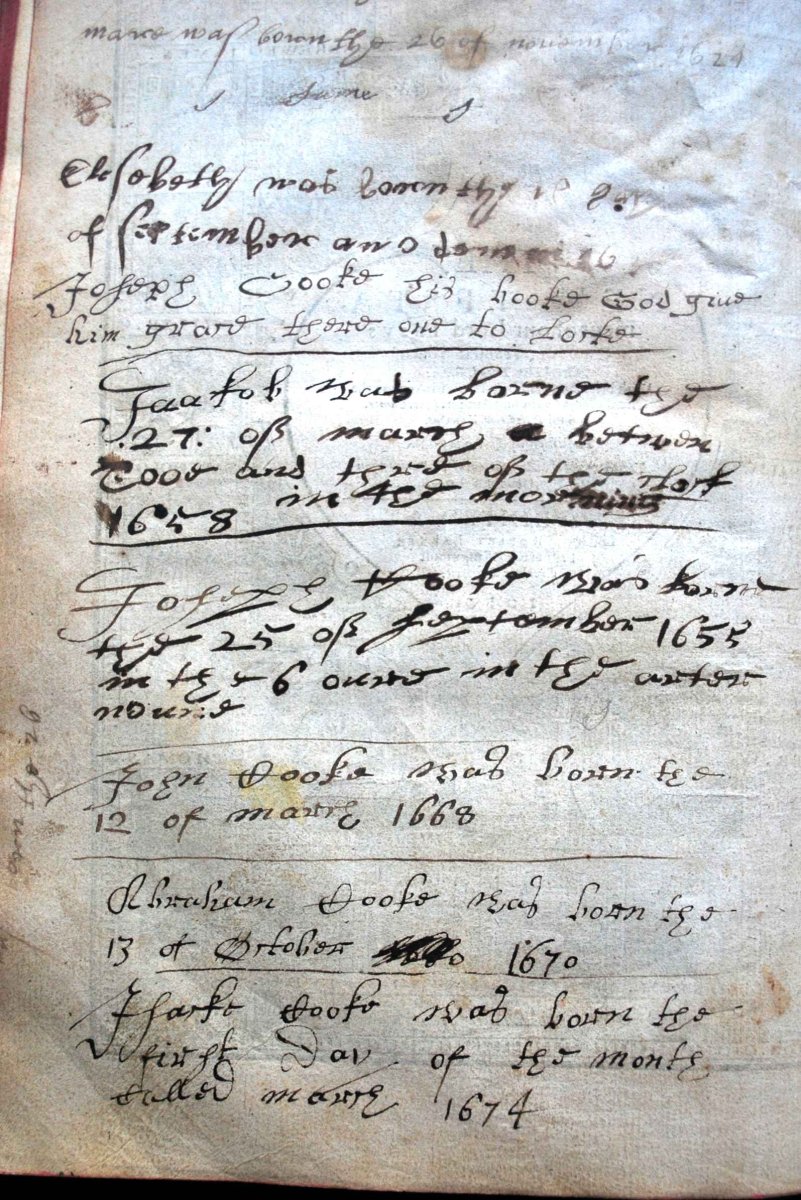 mare was born the 26 of november 1624
Elesebeth was born the 18
of September ano
Joseph Cooke his booke God give
him grace there one to Locke
Jaakob was borne the
.27: off march betwen
Tooe and three off the clock
1658 in the morning
Joseph Cooke was borne
the 25 off september 1655
in the 6 oure in the arter
noune
John Cooke was born the
12 of march 1668
Abraham Cooke was born the
13 of October 1670
Jsacke Cooke was born the
first Day of the month
Called march 1674